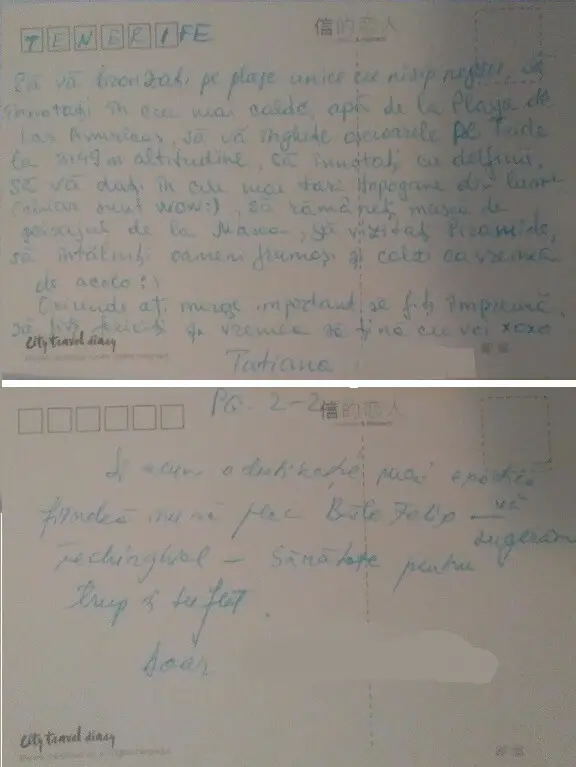 TENERIFE
信的恋人
Să vă bronzați pe plaje unice cu nisip negru, să
înnotați în cea mai caldă, apă de la Playa de
las Americas, să vă înghețe picioarele pe Teide
la 3149 m altitudine, să înnotați cu delfinii,
să vă dați în cele mai tari topogane din lume
(chiar sunt wow:), să rămâneți mască de
peisajul de la Masca, să vizitați Piramide,
să întâlniți oameni frumoși și calzi ca vremea
de acolo :)
Oriunde ați merge important se fiți împreună,
să fiți fericiți și vremea să țină cu voi xoxo
City travel diary
Tatiana
PG. 2-2
信的恋人
Și acum o destinație mai
fiindcă nu vă plac Băile Felix — vă
sugerăm
— Sănătate pentru
trup și suflet.
doar
City travel diary